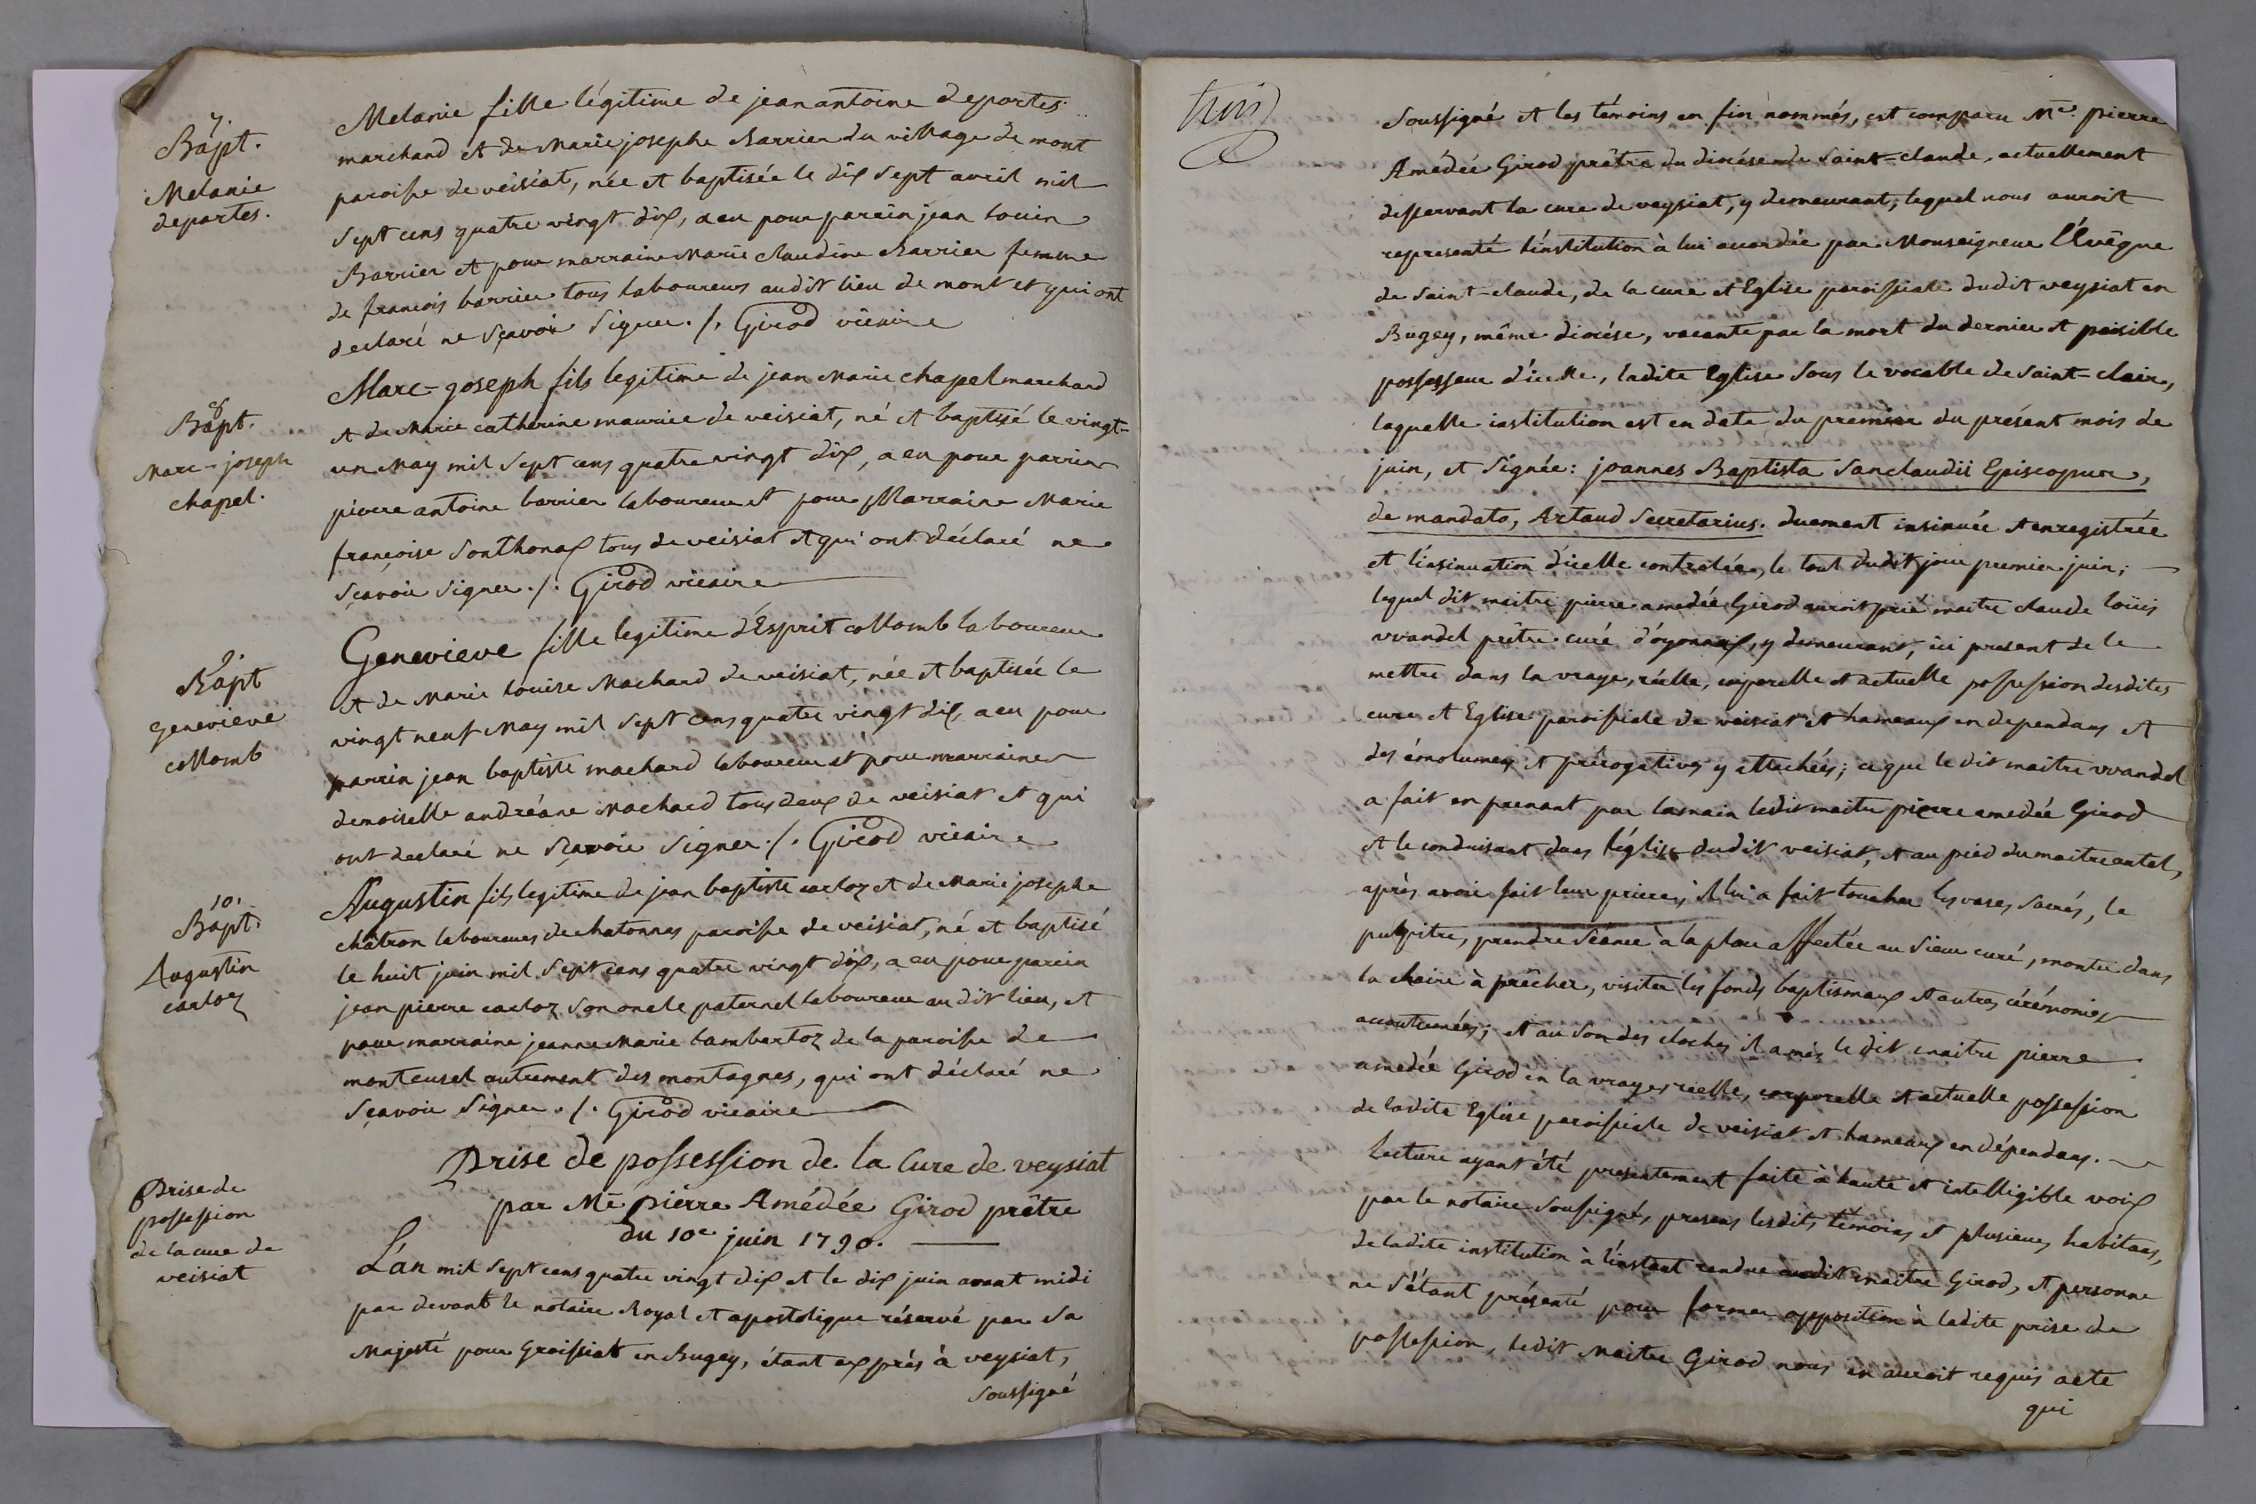 7.
Bapt.
Melanie
deportes.
Melanie fille légitime de jean antoine deportes
marchand et de Marie josephe Barrier du village de mont
paroisse de veisiat, née et baptisée le dix sept avril mil
sept cens quatre vingt dix, a eu pour parrain jean louis
Barrier et pour marraine Marie claudine Barrier femme
de francois barrier tous laboureurs audit lieu de mont et qui ont
declaré ne sçavoir signer ./. Girod vicaire
8.
Bapt.
Marc-joseph
chapel.
Marc-joseph fils legitime de jean Marie chapel marchand
et de Marie catherine maurice de veisiat, né et baptisé le vingt-
un May mil sept cens quatre vingt dix, a eu pour parrain
pierre antoine barrier laboureur et pour Marraine Marie
françoise Sonthonax tous de veisiat et qui ont déclaré ne
sçavoir signer ./. Girod vicaire
9.
Bapt
genevieve
collomb
Genevieve fille legitime d'Esprit collomb laboureur
et de Marie louise Machard de veisiat, née et baptisée le
vingt neuf May mil sept cens quatre vingt dix, a eu pour
parrin jean baptiste machard laboureur et pour marraine
demoiselle andréane Machard tous deux de veisiat et qui
ont declaré ne sçavoir signer ./. Girod vicaire
10.
Bapt.
Augustin
carloz
Augustin fils legitime de jean baptiste carloz et de Marie josephe
châtron laboureurs de chatonnas paroisse de veisiat, né et baptisé
le huit juin mil sept cens quatre vingt dix, a eu pour parrin
jean pierre carloz son oncle paternel laboureur au dit lieu, et
pour marraine jeanne Marie lambertoz de la paroisse de
monteusel autrement des montagnes, qui ont déclaré ne
sçavoir signer ./. Girod vicaire
Prise de
possession
de la cure de
veisiat
Prise de possession de la Cure de veysiat
par Me pierre Amédée Girod prêtre
du 10e juin 1790.
L'an mil sept cens quatre vingt dix et le dix juin avant midi
par devant le notaire Royal et apostolique réservé par sa
Majesté pour Groissiat en Bugey, étant exprés à veysiat,
soussigné
trois
soussigné et les témoins en fin nommés, est comparu Me pierre
Amédée Girod prêtre du diocése de Saint-claude, actuellement
desservant la cure de veysiat, y demeurant, lequel nous auroit
representé l'institution à lui accordée par Monseigneur l'Évêque
de Saint-claude, de la cure et Eglise paroissiale dudit veysiat en
Bugey, même diocése, vacante par la mort du dernier et paisible
possesseur d'icelle, ladite Eglise sous le vocable de Saint-clair,
laquelle institution est en date du premier du présent mois de
juin, et signée: joannes Baptista Sanclaudii Episcopus,
de mandato, Artaud Secretarius. duement insinuée et enregistrée
et l'insinuation d'icelle controlée, le tout dudit jour premier juin;
lequel dit maitre pierre amedée Girod auroit prié maitre claude loüis
vvandel prêtre curé d'oyonnax, y demeurant, ici present de le
mettre dans la vraye, réelle, corporelle et actuelle possession desdites
cure et Eglise paroissiale de veisiat et hameaux en dependans et
des émolumens et prérogatives y attachées; ce que le dit maitre vvandel
a fait en prenant par la main ledit maitre pierre amedée Girod
et le conduisant dans l'église dudit veisiat, et au pied du maitre autel,
après avoir fait leur prieres, il lui a fait toucher les vases sacrés, le
pulpitre, prendre séance à la place affectée au sieur curé, monter dans
la chaire à prêcher, visiter les fonds baptismaux et autres cérémonies
accoutumées; et au son des cloches il a mis le dit maitre pierre
amedée Girod en la vraye, réelle, corporelle et actuelle possession
de ladite Eglise paroissiale de veisiat et hameaux en dépendans.
Lecture ayant été presentement faite à haute et intelligible voix
par le notaire soussigné, presens lesdits témoins et plusieurs habitans,
de ladite institution à l'instant rendue audit maitre Girod, et personne
ne s'étant présenté pour former opposition à ladite prise de
possession, ledit Maitre Girod nous en auroit requis acte
qui